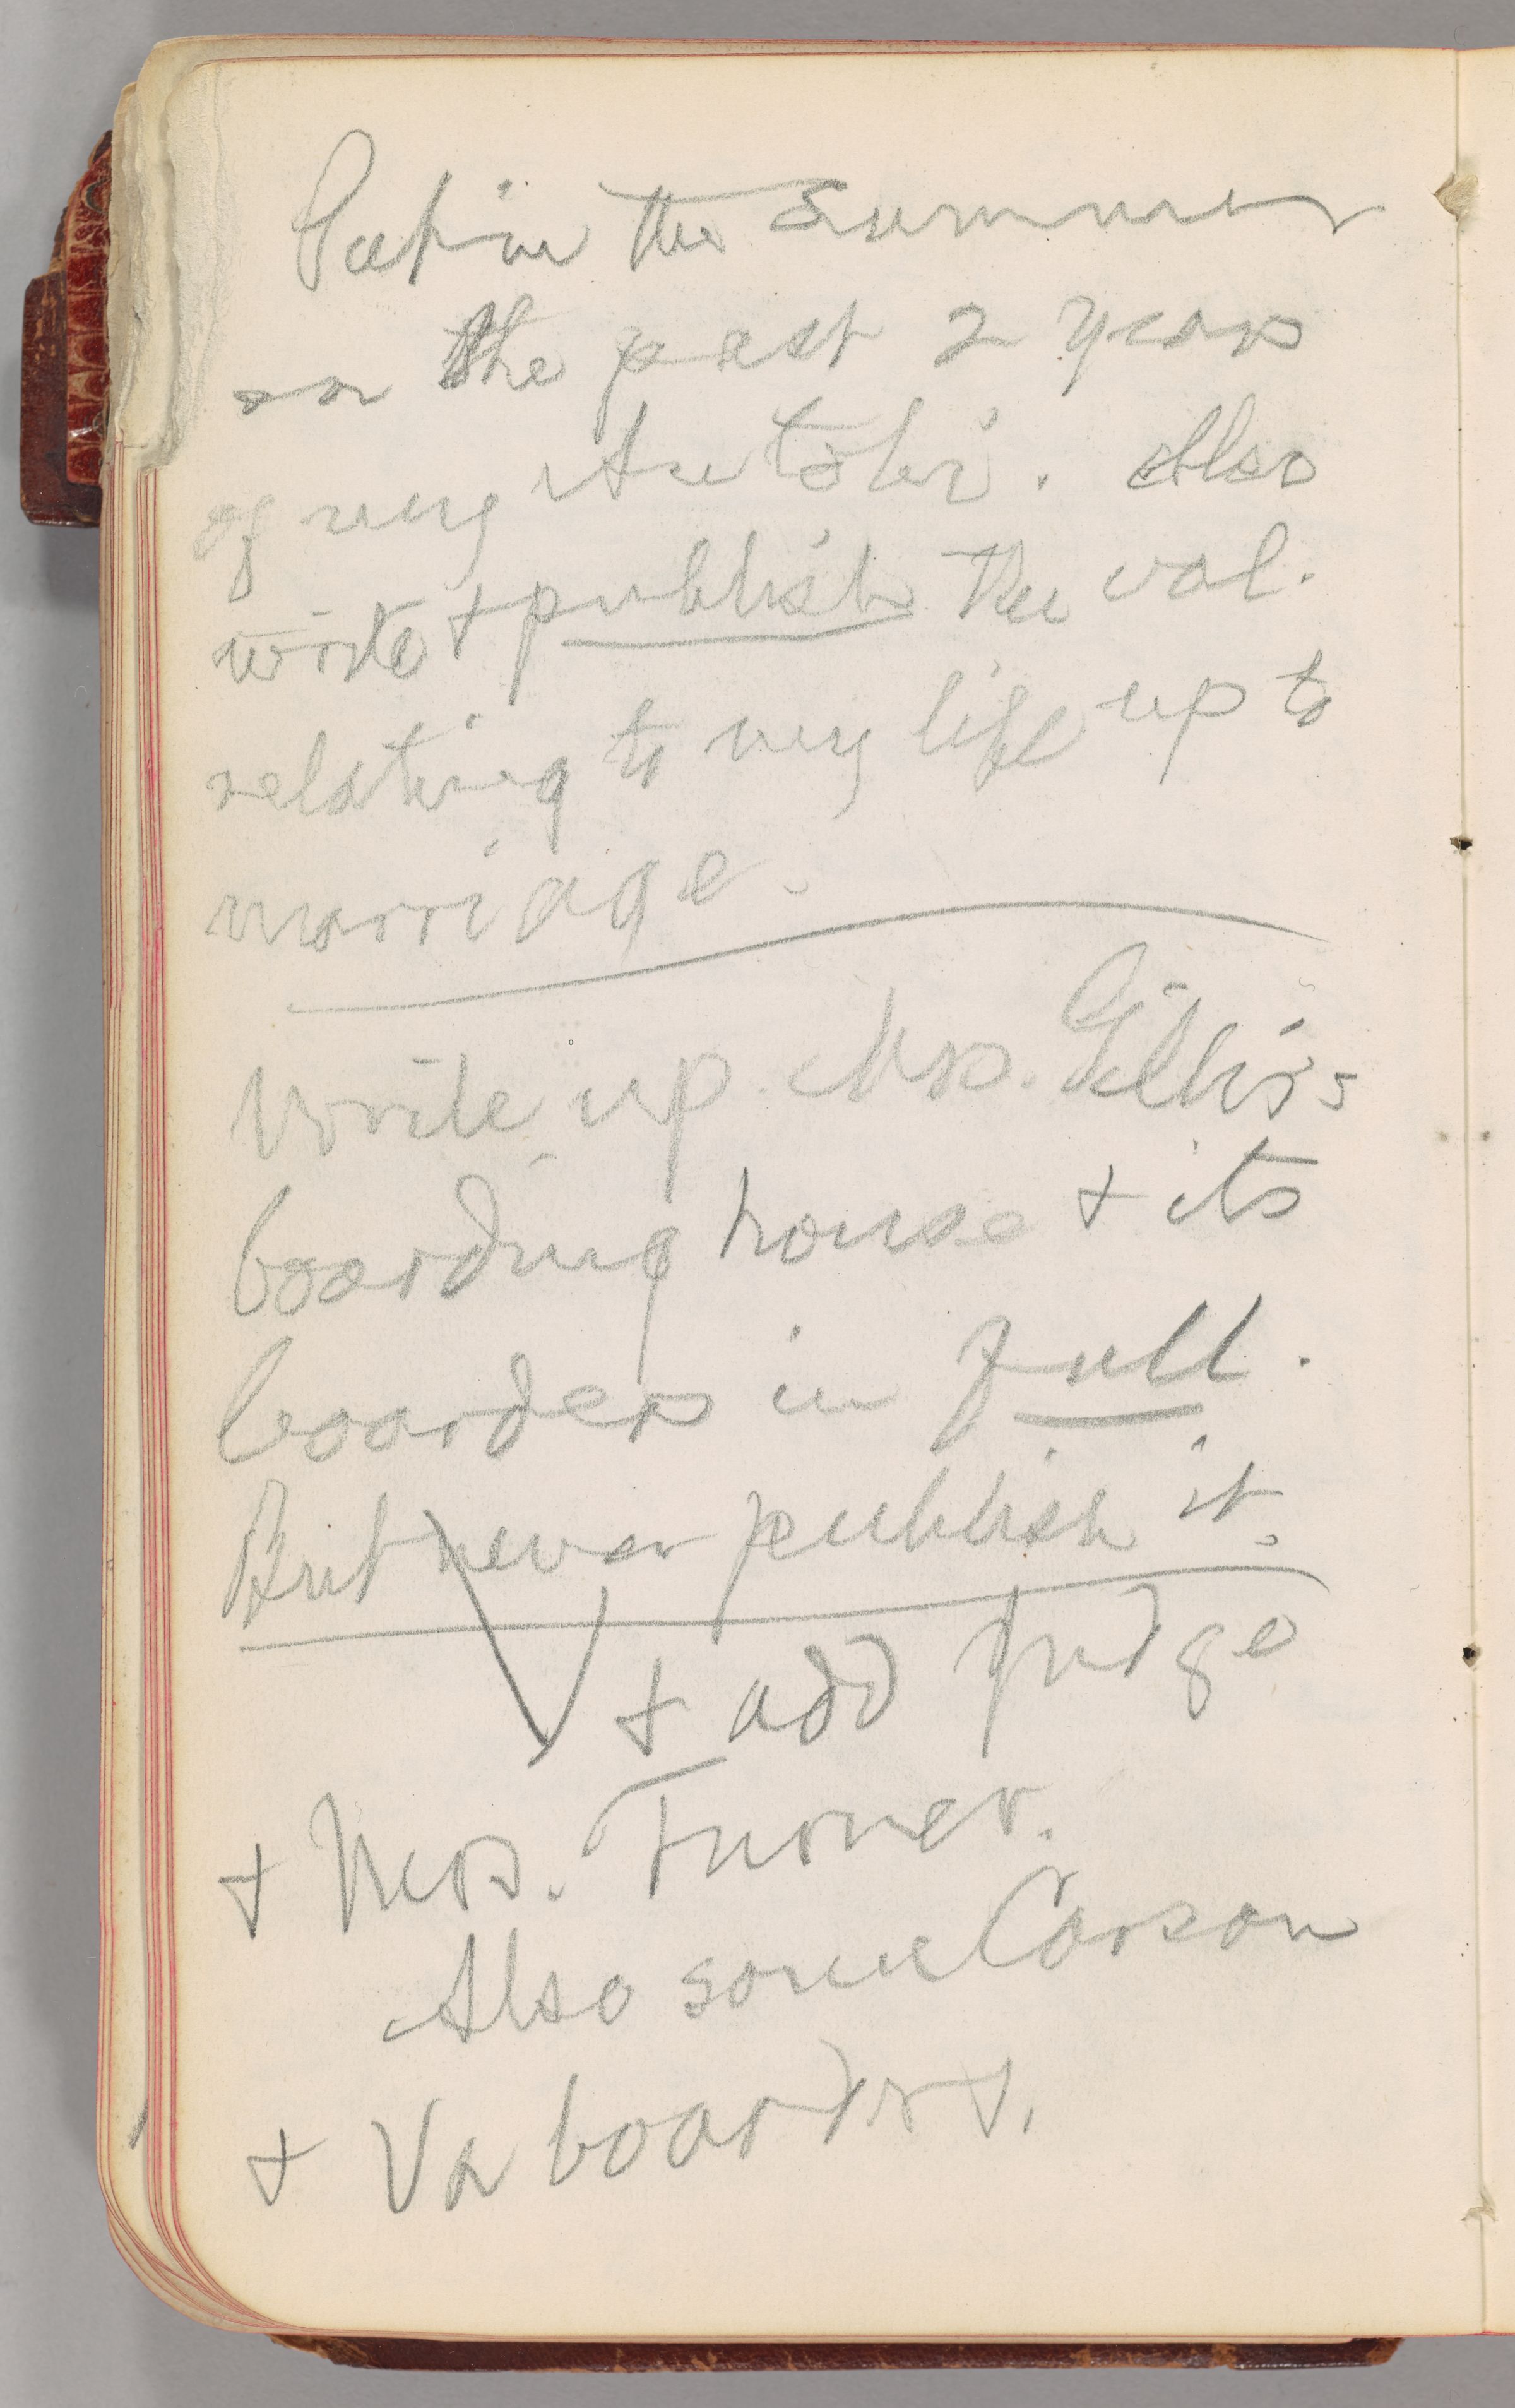 Put in the summer
on the past 2 years
of my Autobi. Also
write + publish the vol.
relating to my life up to
marriage.
Write up Mrs.
boarding house + its
boarders in full.
But never publish it.
+ add Judge
+ Mrs. Turner.
Also some Carson
+ Va boarders.